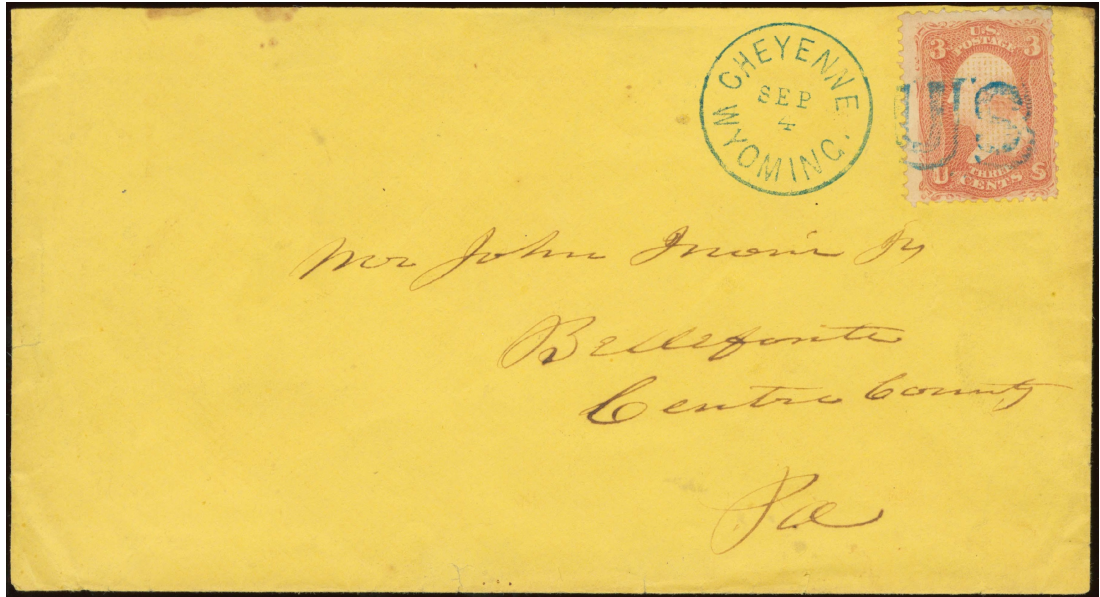 CHEYENNE
SEP
4
WYOMING.
3 3
U.S.
POSTAGE
US
THREE
U CENTS S
Mr John Irvin Jr
Bellefonte
Centre County
Pa